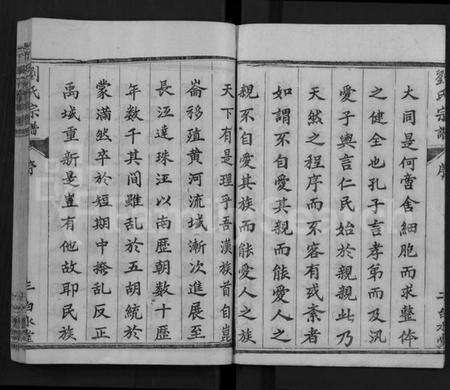 劉氏宗譜
序
二
白水堂
大同是何啻舍細胞而求整体
之健全也孔子言孝弟而及汎
愛子輿言仁民始於親親此乃
天然之程序而不容有或紊者
如謂不自愛其親而能愛人之
親不自愛其族而能愛人之族
天下有是理乎吾漢族首自崑
崙移殖黄河流域漸次進展至
長江達珠江以南歷朝數十歷
年數千其間雖乱於五胡統於
蒙滿然卒於短期中撥乱反正
禹域重新是豈有他故耶民族
劉氏宗譜
序
三
白水堂